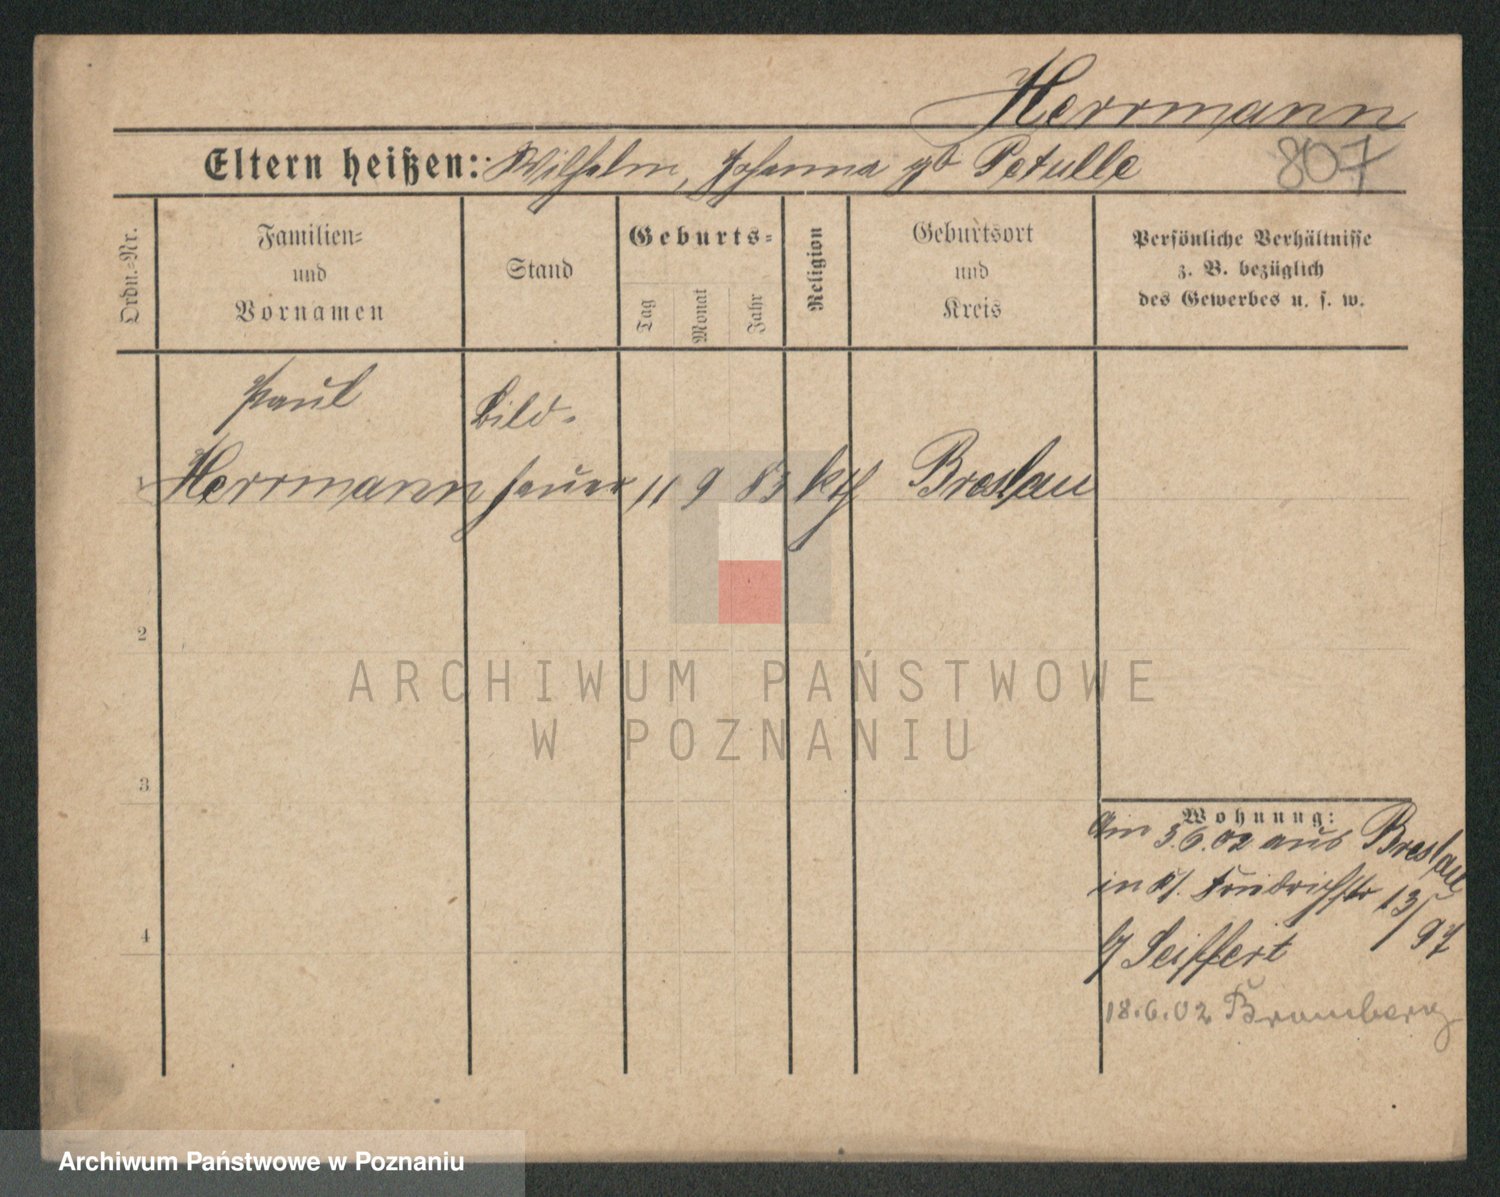 Herrmann
Eltern heißen: Wilhelm, Johanna gb Petulle
807
Ordn.=Nr.
Familien=
und
Vornamen
Stand
Geburts=
Tag
Monat
Jahr
Religion
Geburtsort
und
Kreis
Persönliche Verhältnisse
z. B. bezüglich
des Gewerbes u. s. w.
Paul
Bild-
1 Herrmann hauer 11 9 83 kth Breslau
2
3
4
Wohnung:
Am 3.6.02 aus Breslau
in Friedrichstr 13/97
b/ Seiffert
18.6.02 Bromberg
ARCHIWUM PAŃSTWOWE
W POZNANIU
Archiwum Państwowe w Poznaniu